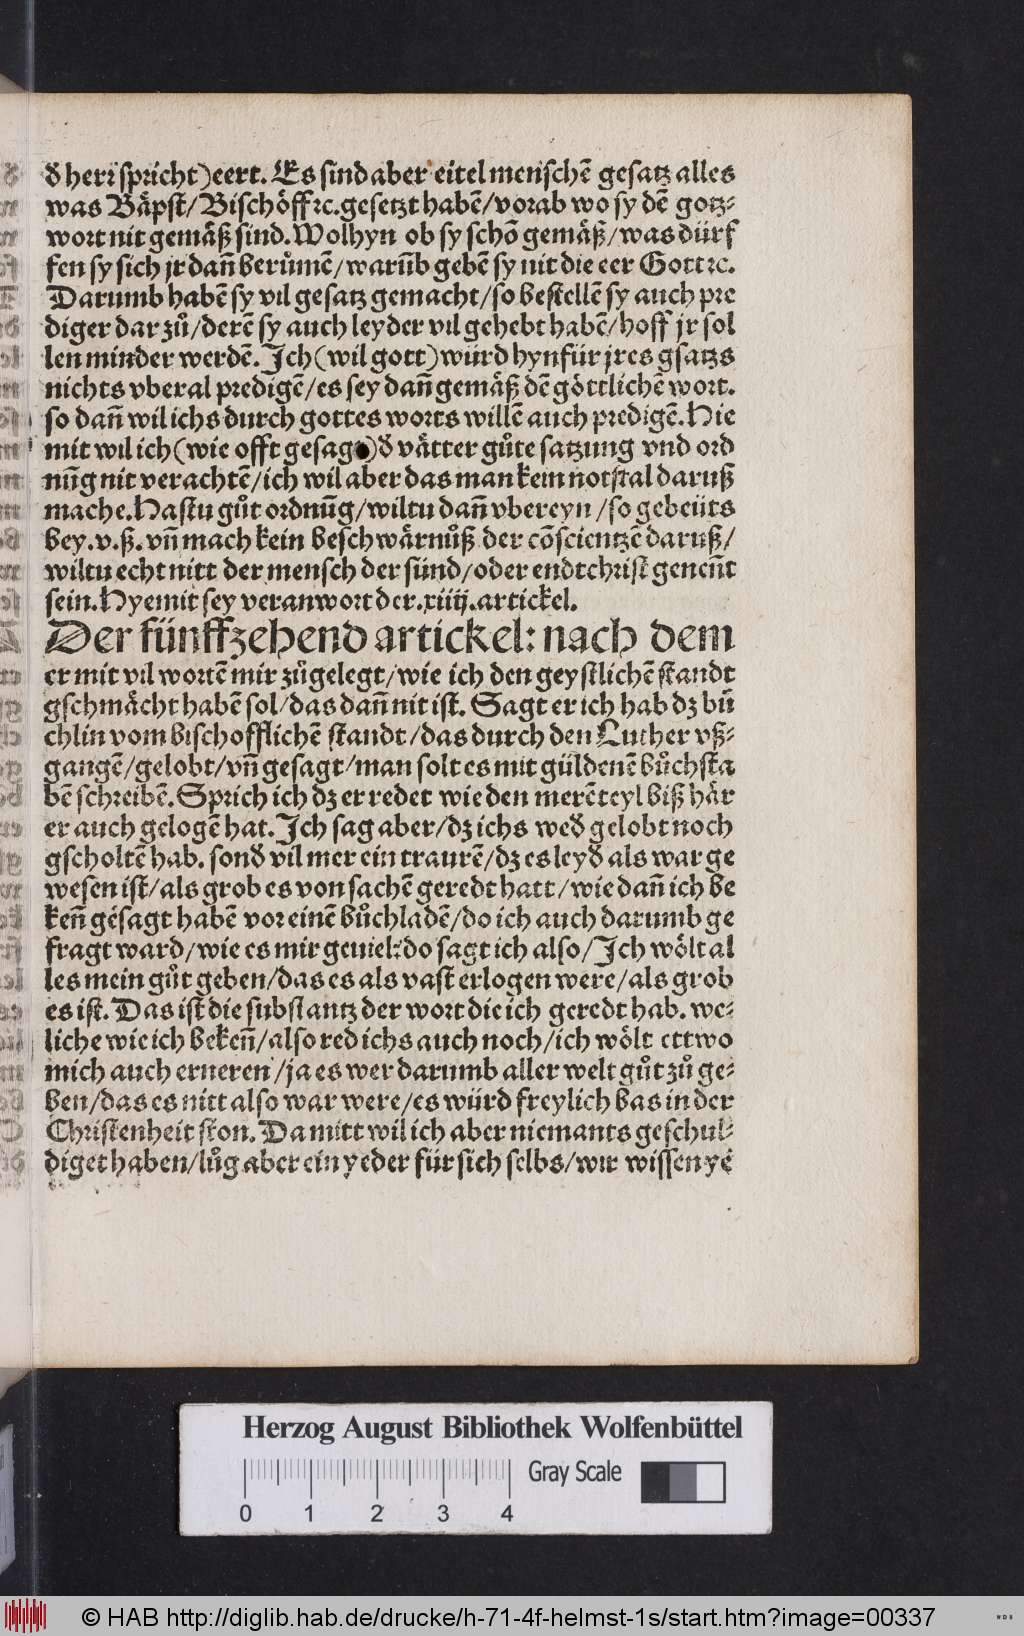 ð herr spricht) eert. Es sind aber eitel menschē gesatz alles
was Bäpst/ Bischöff ꝛc. gesetzt habē/ vorab wo sy dē gotz⸗
wort nit gemäß sind. Wolhyn ob sy schō gemäß/ was dürf
fen sy sich jr dañ berůmē/ warūb gebē sy nit die eer Gott ꝛc.
Darumb habē sy vil gesatz gemacht/ so bestellē sy auch pre
diger dar zů/ derē sy auch leyder vil gehebt habē/ hoff jr sol
len minder werdē. Ich (wil gott) würd hynfür jres gsatzs
nichts vberal predigē/ es sey dañ gemäß dē göttlichē wort.
so dañ wil ichs durch gottes worts willē auch predigē. Hie
mit wil ich (wie offt gesagt) ð vätter gůte satzung vnd ord
nūg nit verachtē/ ich wil aber das man kein notstal daruß
mache. Hastu gůt ordnūg/ wiltu dañ vbereyn / so gebeüts
bey .v.ß. vñ mach kein beschwärnůß der cōscientzē daruß/
wiltu echt nitt der mensch der sünd/ oder endtchrist geneñt
sein. Hyemit sey veranwort der .xiiij. artickel.
Der fünffzehend artickel: nach dem
er mit vil wortē mir zůgelegt/ wie ich den geystlichē standt
gschmächt habē sol/ das dañ nit ist. Sagt er ich hab dz bů
chlin vom bischofflichē standt/ das durch den Luther vß⸗
gangē/ gelobt/ vñ gesagt/ man solt es mit güldenē bůchsta
bē schreibē. Sprich ich dz er redet wie den merē teyl biß här
er auch gelogē hat. Ich sag aber/ dz ichs weð gelobt noch
gscholtē hab. sonð vil mer ein traurē/ dz es leyð als war ge
wesen ist/ als grob es von sachē geredt hatt/ wie dañ ich be
keñ gesagt habē vor einē bůchladē/ do ich auch darumb ge
fragt ward/ wie es mir geuiel: do sagt ich also/ Ich wölt al
les mein gůt geben/ das es als vast erlogen were/ als grob
es ist. Das ist die substantz der wort die ich geredt hab. we⸗
liche wie ich bekeñ/ also red ichs auch noch/ ich wölt ettwo
mich auch erneren / ja es wer darumb aller welt gůt zů ge⸗
ben/ das es nitt also war were/ es würd freylich bas in der
Christenheit ston. Da mitt wil ich aber niemants geschul⸗
diget haben/ lůg aber ein yeder für sich selbs/ wir wissen yē
Herzog August Bibliothek Wolfenbüttel
Gray Scale
0 1 2 3 4
© HAB http://diglib.hab.de/drucke/h-71-4f-helmst-1s/start.htm?image=00337